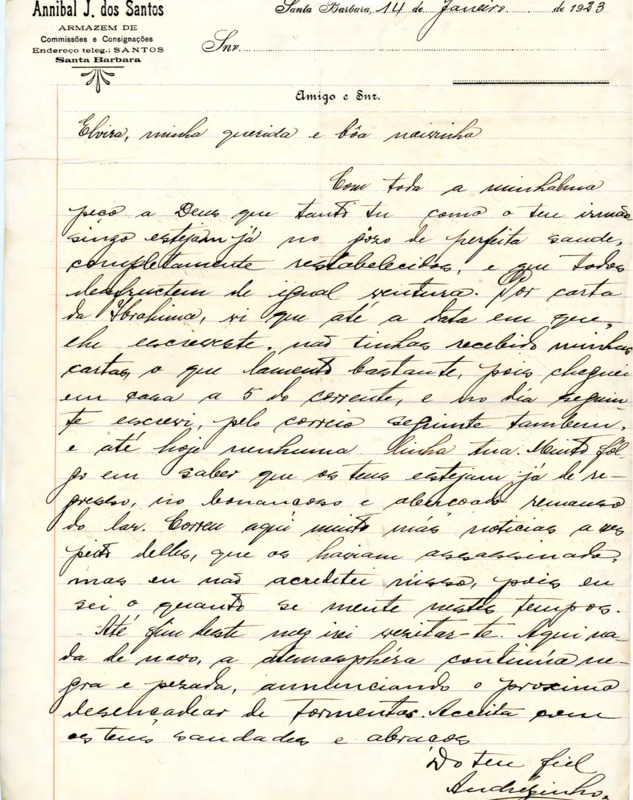 Annibal J. dos Santos
ARMAZEM DE
Commissões e Consignações
Endereço teleg.: SANTOS
Santa Barbara
Santa Barbara, 14 de Janeiro de 1923
Snr.
Amigo e Snr.
Elvira, minha querida e bôa noivinha
Com toda a minhalma
peço a Deus que tanto tu como o teu irmão-
singo estejam já no gozo de perfeita saude,
completamente restabelecidos, e que todos
desfructem de igual ventura. Por carta
da Ibrahima, vi que até a data em que
lhe escreveste, não tinhas recebido minhas
cartas o que lamento bastante, pois cheguei
em casa a 5 do corrente, e no dia seguin-
te escrevi, pelo correio seguinte tambem,
e até hoje nenhuma linha tua. Muito fol-
go em saber que os teus estejam já de re-
gresso, no bonançoso e abençoado remanso
do lar. Correu aqui muito más noticias a res
peito delles, que os haviam assassinado,
mas eu não acreditei nisso, pois eu
sei o quanto se mente nestes tempos.
Até fim deste mez irei vezitar-te. Aqui na-
da de novo, a atmosphéra continúa ne-
gra e pezada, annunciando o proximo
desencadear de tormentas. Acceita com
os teus saudades e abraços
Do teu fiel
Andrézinho.